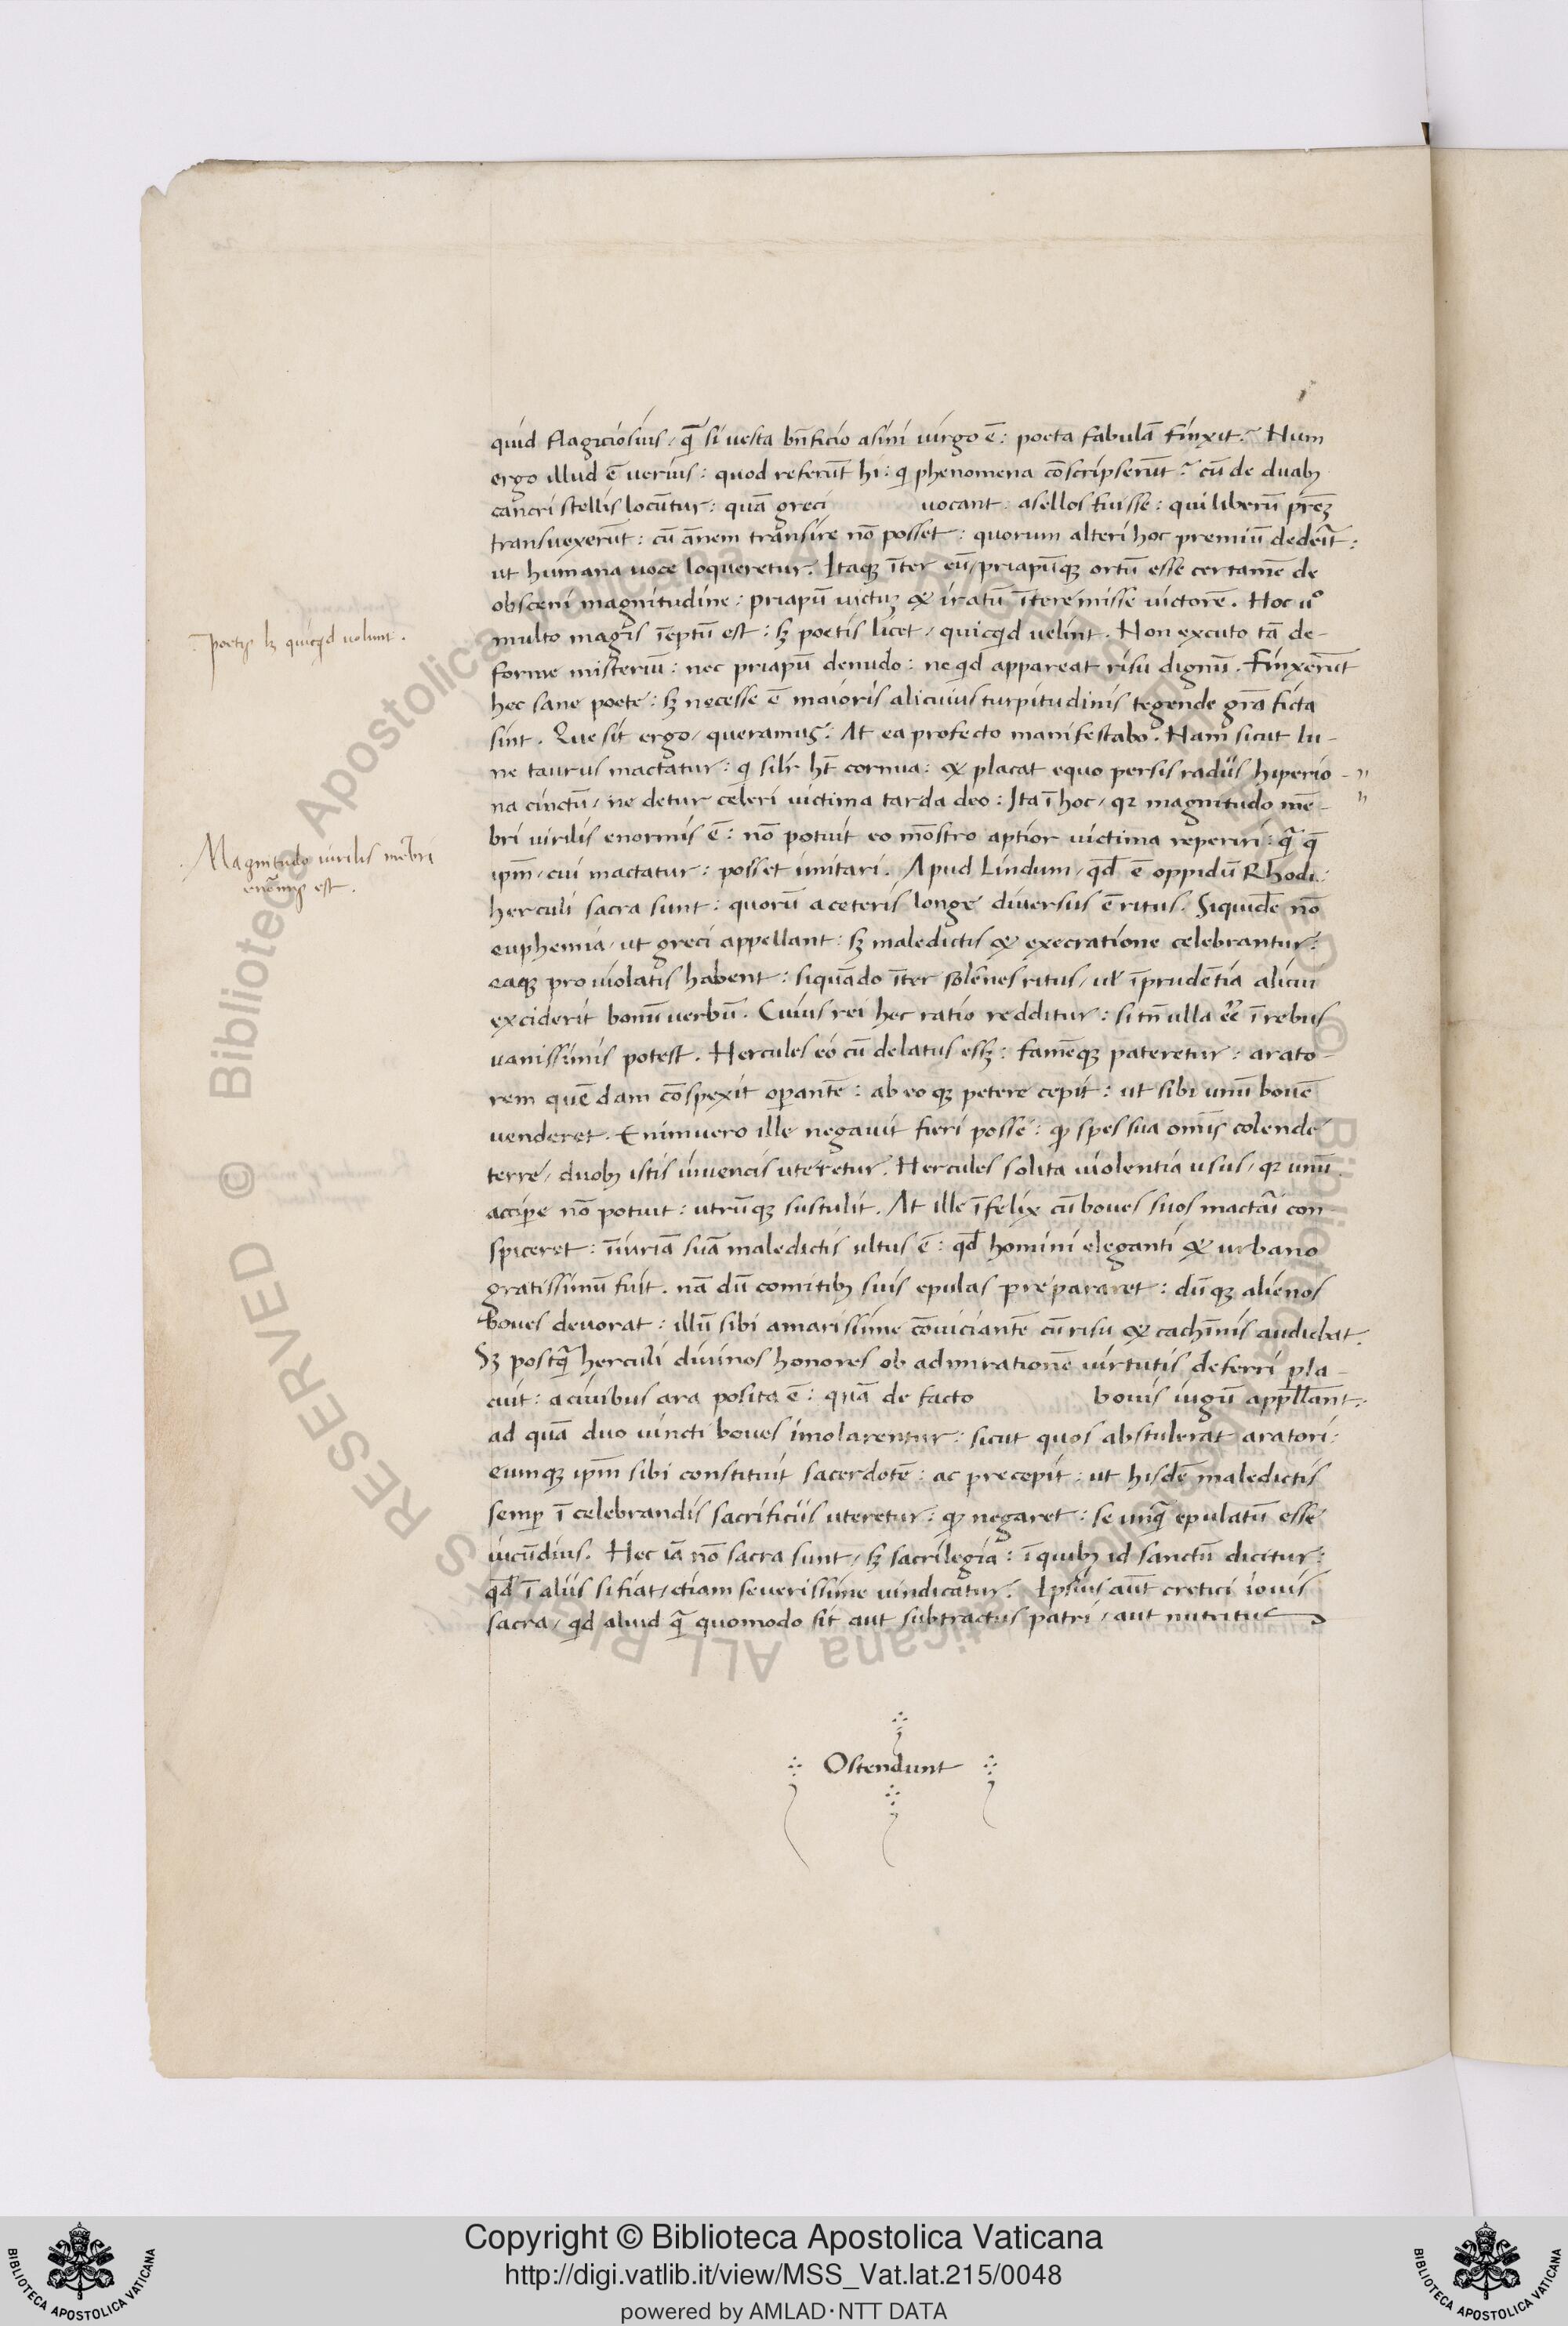 quid flagiciosius / q̄ si uesta bn̄ficio asini uirgo ē : poeta fabulā finxit ? Num
ergo illud ē uerius : quod referūt hi : q phenomena cōscripserūt ? cū de duabꝫ
cancri stellis locūtur : quā greci uocant : asellos fuisse : qui liberū p̄rēꝫ
transuexerūt : cū ānem transire nō posset : quorum alteri hoc premiū dedeīt :
ut humana uoce loqueretur . Itaqꝫ īter eū / priapūqꝫ ortū esse certamē de
obsceni magnitudine : priapū uictuꝫ & iratū īteremisse uictorē . Hoc uº
multo magis īeptū est : sꝫ poetis licet / quicqd velint . Non excuto tā de-
forme misteriū : nec priapū denudo : ne qd appareat risu dignū . Finxerūt
hec sane poete : sꝫ necesse ē maioris alicuius turpitudinis tegende grā ficta
sint . Que sit ergo / queramus ? At ea profecto manifestabo . Nam sicut lu-
ne taurus mactatur : q silr̄ ht̄ cornua : & placat equo persis radiis hiperio-
na cinctū / ne detur celeri uictima tarda deo : Ita ī hoc / qꝛ magnitudo mē-
bri virilis enormis ē : nō potuit eo mōstro aptior victima reperiri : q̄ q̄
ipm̄ / cui mactatur : posset imitari . Apud Lindum / qd̄ ē oppidū Rhodi :
herculi sacra sunt : quorū a ceteris longe diversus ē ritus . Siquidē nō
euphemia / ut greci appellant : sꝫ maledictis & execratione celebrantur :
eaqꝫ pro violatis habent : siquādo īter solēnes ritus / ul̄ īprudētia alicui
exciderit bonū verbū . Cuius rei hec ratio redditur : si tn̄ ulla eē ī rebus
vanissimis potest . Hercules eo cū delatus essꝫ : famēqꝫ pateretur : arato-
rem quēdam cōspexit operantē : ab eo qꝫ petere cepit : ut sibi unū bouē
venderet . Enimvero ille negavit fieri posse : qꝫ spes sua omīs colende
terre / duobꝫ istis iuvencis uteretur . Hercules solita violentia usus / qꝛ unū
accipe nō potuit : utrūqꝫ sustulit . At ille īfelix cū boues suos mactāi con-
spiceret : īiuriā suā maledictis ultus ē : qd̄ homini eleganti & urbano
gratissimū fuit . nā dū comitibꝫ suis epulas prepararet : dūqꝫ alienos
boues devorat : illū sibi amarissime cōviciantē cū risu & cachīnis audiebat .
Sꝫ postq̄ herculi divinos honores ob admirationē virtutis deferri pla-
cuit : a civibus ara posita ē : quā de facto bouis iugū appll̄ant :
ad quā duo iuncti boues imolarentur : sicut quos abstulerat aratori :
eumqꝫ ipm̄ sibi constituit sacerdotē : ac precepit : ut hisdē maledictis
semp ī celebrandis sacrificiis uteretur : qꝫ negaret : se unq̄ epulatū esse
iucūdius . Hec iā nō sacra sunt / sꝫ sacrilegia : ī quibꝫ id sanctū dicitur :
qd̄ ī aliis si fiat / etiam severissime vindicatur . Ipsius aūt cretici iovis
sacra / qd aliud q̄ quomodo sit aut subtractus patri / aut nutritus
Ostendunt
poetis lꝫ quicqd uolunt .
Magnitudo uirilis mēbri
enormis est .
Copyright © Biblioteca Apostolica Vaticana
http://digi.vatlib.it/view/MSS_Vat.lat.215/0048
powered by AMLAD·NTT DATA
BIBLIOTECA APOSTOLICA VATICANA
BIBLIOTECA APOSTOLICA VATICANA